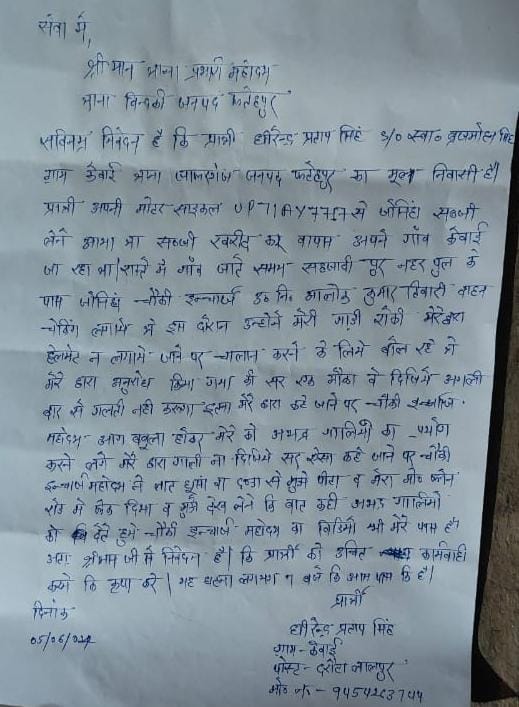 सेवा में,
श्री मान थाना प्रभारी महोदय
थाना बिन्दकी जनपद फतेहपुर
सविनय निवेदन है कि प्रार्थी धीरेन्द्र प्रताप सिंह S/O स्व० बृजमोहन सिंह
ग्राम केवाई थाना जनपद फतेहपुर का मूल निवासी है।
प्रार्थी अपनी मोटर साइकल UP71AY7757 से जोनिहा सब्जी
लेने आया था सब्जी खरीद कर वापस अपने गाँव केवाई
जा रहा था। रास्ते में गाँव जाते समय पुर नहर पुल के
पास जोनिहा चौकी इन्चार्ज उ० नि० आलोक कुमार तिवारी वाहन
चेकिंग लगाये थे इस दौरान उन्होने मेरी गाड़ी रोकी मेरे द्वारा
हेलमेट न लगाये जाने पर चालान करने के लिये बोल रहे थे
मेरे द्वारा अनुरोध किया गया की सर एक मौका दे दिजिये अगली
बार से गलती नही करूंगा इतना मेरे द्वारा कहे जाने पर चौकी इन्चार्ज
महोदय आग बबूला होकर मेरे को अभद्र गालियो का प्रयोग
करने लगे मेरे द्वारा गाली ना दिजिये सर ऐसा कहे जाने पर चौकी
इन्चार्ज महोदय ने लात घूसो व डन्डा से मुझे पीटा व मेरा फोन
रोड में फेक दिया व मुझे देख लेने कि बात कही अभद्र गालियो
को देते हुये चौकी इन्चार्ज महोदय का विडियो भी मेरे पास है।
अतः श्रीमान जी से निवेदन है। कि प्रार्थी को उचित कार्यवाही
करने कि कृपा करे। यह घटना लगभग 7 बजे कि आस पास कि है।
प्रार्थी
दिनांक
05/06/024
धीरेन्द्र प्रताप सिंह
ग्राम - केवाई
पोस्ट - लालपुर
मो० न० -